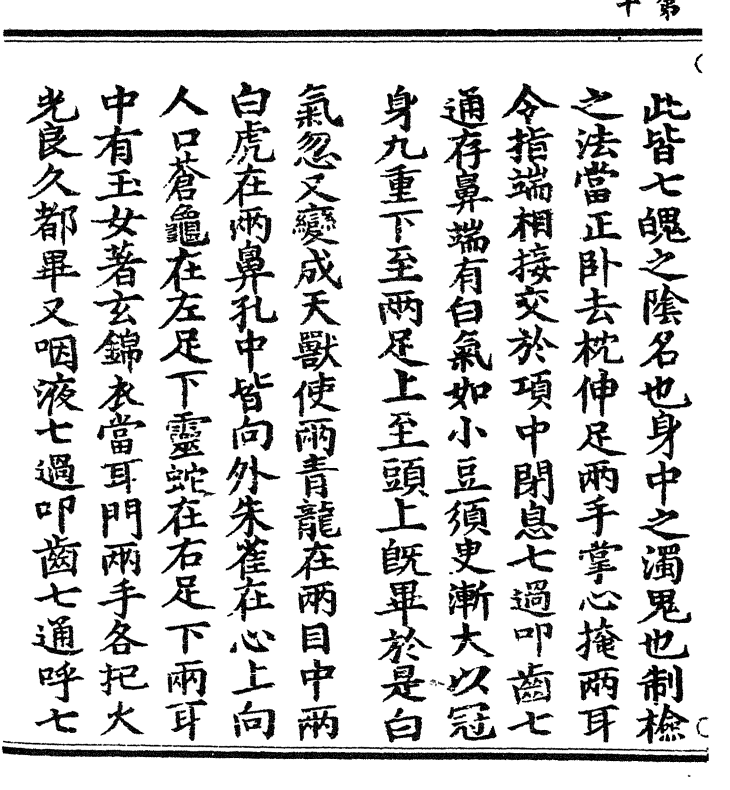 第
十
此皆七魄之陰名也身中之濁鬼也制檢
之法當正卧去枕伸足兩手掌心掩兩耳
令指端相接交於項中閉息七過叩齒七
通存鼻端有白氣如小豆須史漸大以冠
身九重下至兩足上至頭上旣畢於是白
氣忽又變成天獸使兩青龍在兩目中兩
白虎在兩鼻孔中皆向外朱雀在心上向
人口蒼龜在左足下靈蛇在右足下兩耳
中有玉女著玄錦衣當耳門兩手各把火
光良久都畢又咽液七過叩齒七通呼七